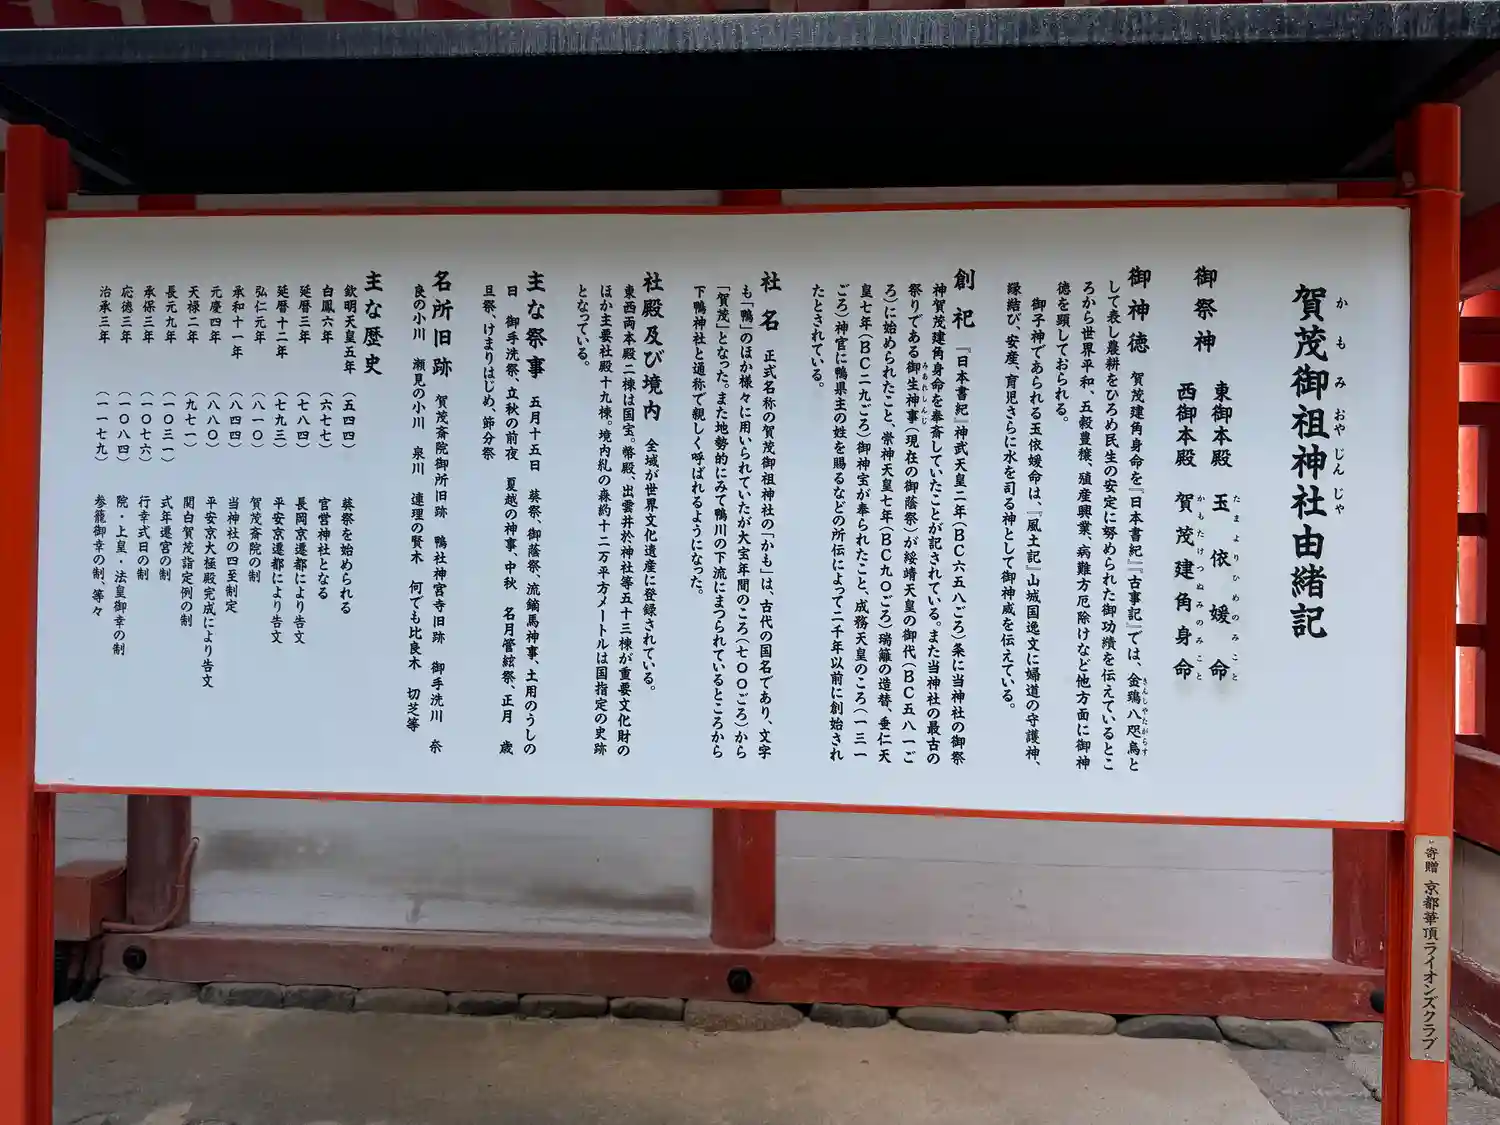 賀茂御祖神社由緒記
かもみおやじんじゃ
御祭神
東御本殿 玉依媛命
たまよりひめのみこと
西御本殿 賀茂建角身命
かもたけつぬみのみこと
御神徳 賀茂建角身命を『日本書紀』『古事記』では、金鵄八咫烏と
きんしやたがらす
して表し農耕をひろめ民生の安定に努められた御功績を伝えているとこ
ろから世界平和、五穀豊穣、殖産興業、病難方厄除けなど他方面に御神
徳を顕しておられる。
御子神であられる玉依媛命は、『風土記』山城国逸文に婦道の守護神、
縁結び、安産、育児さらに水を司る神として御神威を伝えている。
創祀 『日本書紀』神武天皇二年（BC六五八ごろ）条に当神社の御祭
神賀茂建角身命を奉斎していたことが記されている。また当神社の最古の
祭りである御生神事（現在の御蔭祭）が綏靖天皇の御代（BC五八一ご
みあれしんじ
ろ）に始められたこと、崇神天皇七年（BC九〇ごろ）瑞籬の造替、垂仁天
皇七年（BC二九ごろ）御神宝が奉られたこと、成務天皇のころ（一三一
ごろ）神官に鴨県主の姓を賜るなどの所伝によって二千年以前に創始され
たとされている。
社名 正式名称の賀茂御祖神社の「かも」は、古代の国名であり、文字
も「鴨」のほか様々に用いられていたが大宝年間のころ（七〇〇ごろ）から
「賀茂」となった。また地勢的にみて鴨川の下流にまつられているところから
下鴨神社と通称で親しく呼ばれるようになった。
社殿及び境内 全域が世界文化遺産に登録されている。
東西両本殿二棟は国宝。幣殿、出雲井於神社等五十三棟が重要文化財の
ほか主要社殿十九棟。境内糺の森約十二万平方メートルは国指定の史跡
となっている。
主な祭事 五月十五日 葵祭、御蔭祭、流鏑馬神事、土用のうしの
日 御手洗祭、立秋の前夜 夏越の神事、中秋 名月管絃祭、正月 歳
旦祭、けまりはじめ、節分祭
名所旧跡 賀茂斎院御所旧跡 鴨社神宮寺旧跡 御手洗川 奈
良の小川 瀬見の小川 泉川 連理の賢木 何でも比良木 切芝等
主な歴史
欽明天皇五年 （五四四） 葵祭を始められる
白鳳六年 （六七七） 官営神社となる
延暦三年 （七八四） 長岡京遷都により告文
延暦十二年 （七九三） 平安京遷都により告文
弘仁元年 （八一〇） 賀茂斎院の制
承和十一年 （八四四） 当神社の四至制定
元慶四年 （八八〇） 平安京大極殿完成により告文
天禄二年 （九七一） 関白賀茂詣定例の制
長元九年 （一〇三一） 式年遷宮の制
承保三年 （一〇七六） 行幸式日の制
応徳三年 （一〇八四） 院・上皇・法皇御幸の制
治承三年 （一一七九） 参籠御幸の制、等々
寄贈 京都華頂ライオンズクラブ